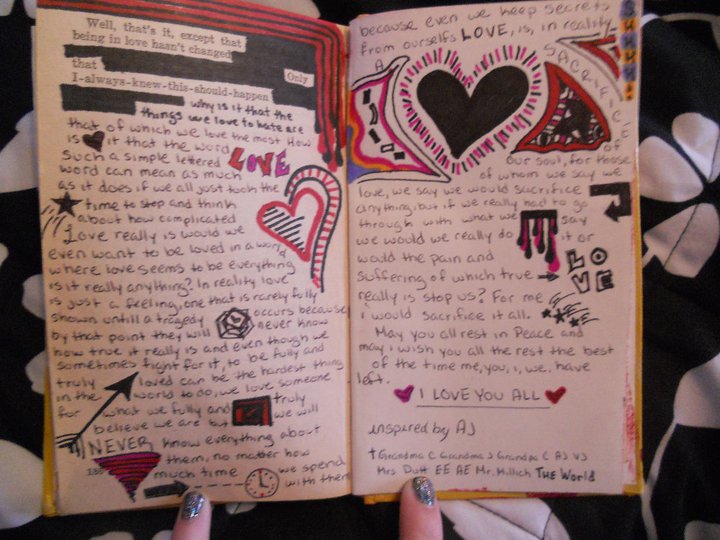 Well, that's it, except that
being in love hasn't changed
that Only
I-always-knew-this-should-happen
why is it that the
things we love to hate are
that of which we love the most How
is it that the word
Such a simple lettered LOVE
word can mean as much
as it does if we all just took the
time to stop and think
about how complicated
Love really is would we
even want to be loved in a world
where love seems to be everything
is it really anything? In reality love
is just a feeling, one that is rarely fully
shown untill a tragedy occurs because
by that point they will never know
how true it really is and even though we
sometimes fight for it, to be fully and
truly loved can be the hardest thing
in the world to do, we love someone
for what we fully and truly
believe we are but we will
NEVER know everything about
them, no matter how
much time we spend
with them
because even we keep secrets
from ourselfs LOVE, is, in reality
A SACRIFICE
of
our soul, for those
of whom we say we
love, we say we would sacrifice
anything, but if we really had to go
through with what we say
we would we really do it or
would the pain and
suffering of which true LOVE
really is stop us? For me
i would sacrifice it all.
May you all rest in Peace and
may i wish you all the rest the best
of the time me, you, i, we, have
left.
I LOVE YOU ALL
inspired by AJ
† Grandma C Grandma J Grandpa C AJ VJ
Mrs Dutt EE AE Mr. Millich THE World